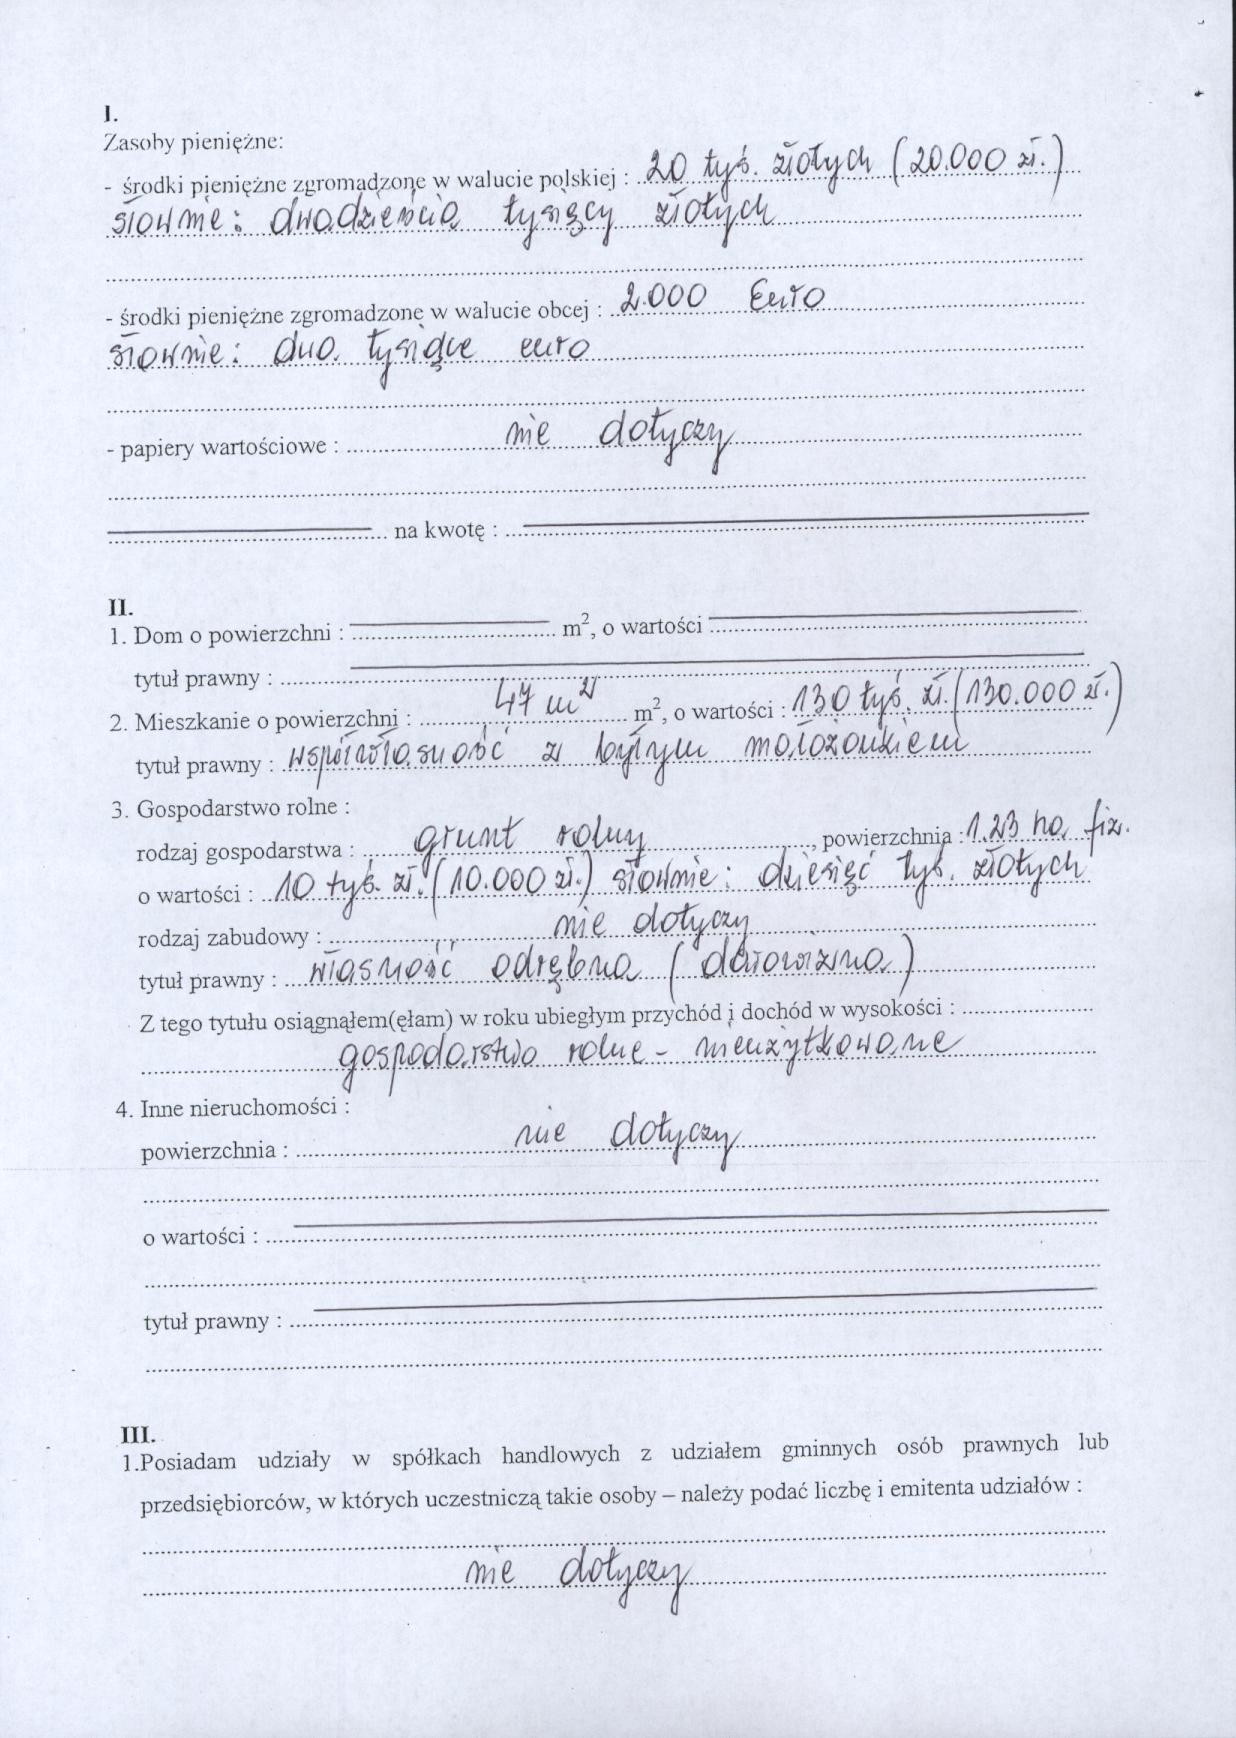 I.
Zasoby pieniężne:
- środki pieniężne zgromadzone w walucie polskiej : 20 tyś. złotych (20.000 zł.)
słownie: dwadzieścia tysięcy złotych
- środki pieniężne zgromadzone w walucie obcej : 2.000 Euro
słownie: dwa tysiące euro
- papiery wartościowe : nie dotyczy
na kwotę :
II.
1. Dom o powierzchni : m², o wartości :
tytuł prawny :
2. Mieszkanie o powierzchni : 47 m² m², o wartości : 130 tyś. zł. (130.000 zł.)
tytuł prawny : współwłasność z byłym małżonkiem
3. Gospodarstwo rolne :
rodzaj gospodarstwa : grunt rolny, powierzchnia : 1.23 ha fiz.
o wartości : 10 tyś. zł. (10.000 zł.) słownie: dziesięć tyś. złotych
rodzaj zabudowy : nie dotyczy
tytuł prawny : własność odrębna (darowizna)
Z tego tytułu osiągnąłem(ęłam) w roku ubiegłym przychód i dochód w wysokości :
gospodarstwo rolne - nieużytkowane
4. Inne nieruchomości :
powierzchnia : nie dotyczy
o wartości :
tytuł prawny :
III.
1.Posiadam udziały w spółkach handlowych z udziałem gminnych osób prawnych lub
przedsiębiorców, w których uczestniczą takie osoby – należy podać liczbę i emitenta udziałów :
nie dotyczy